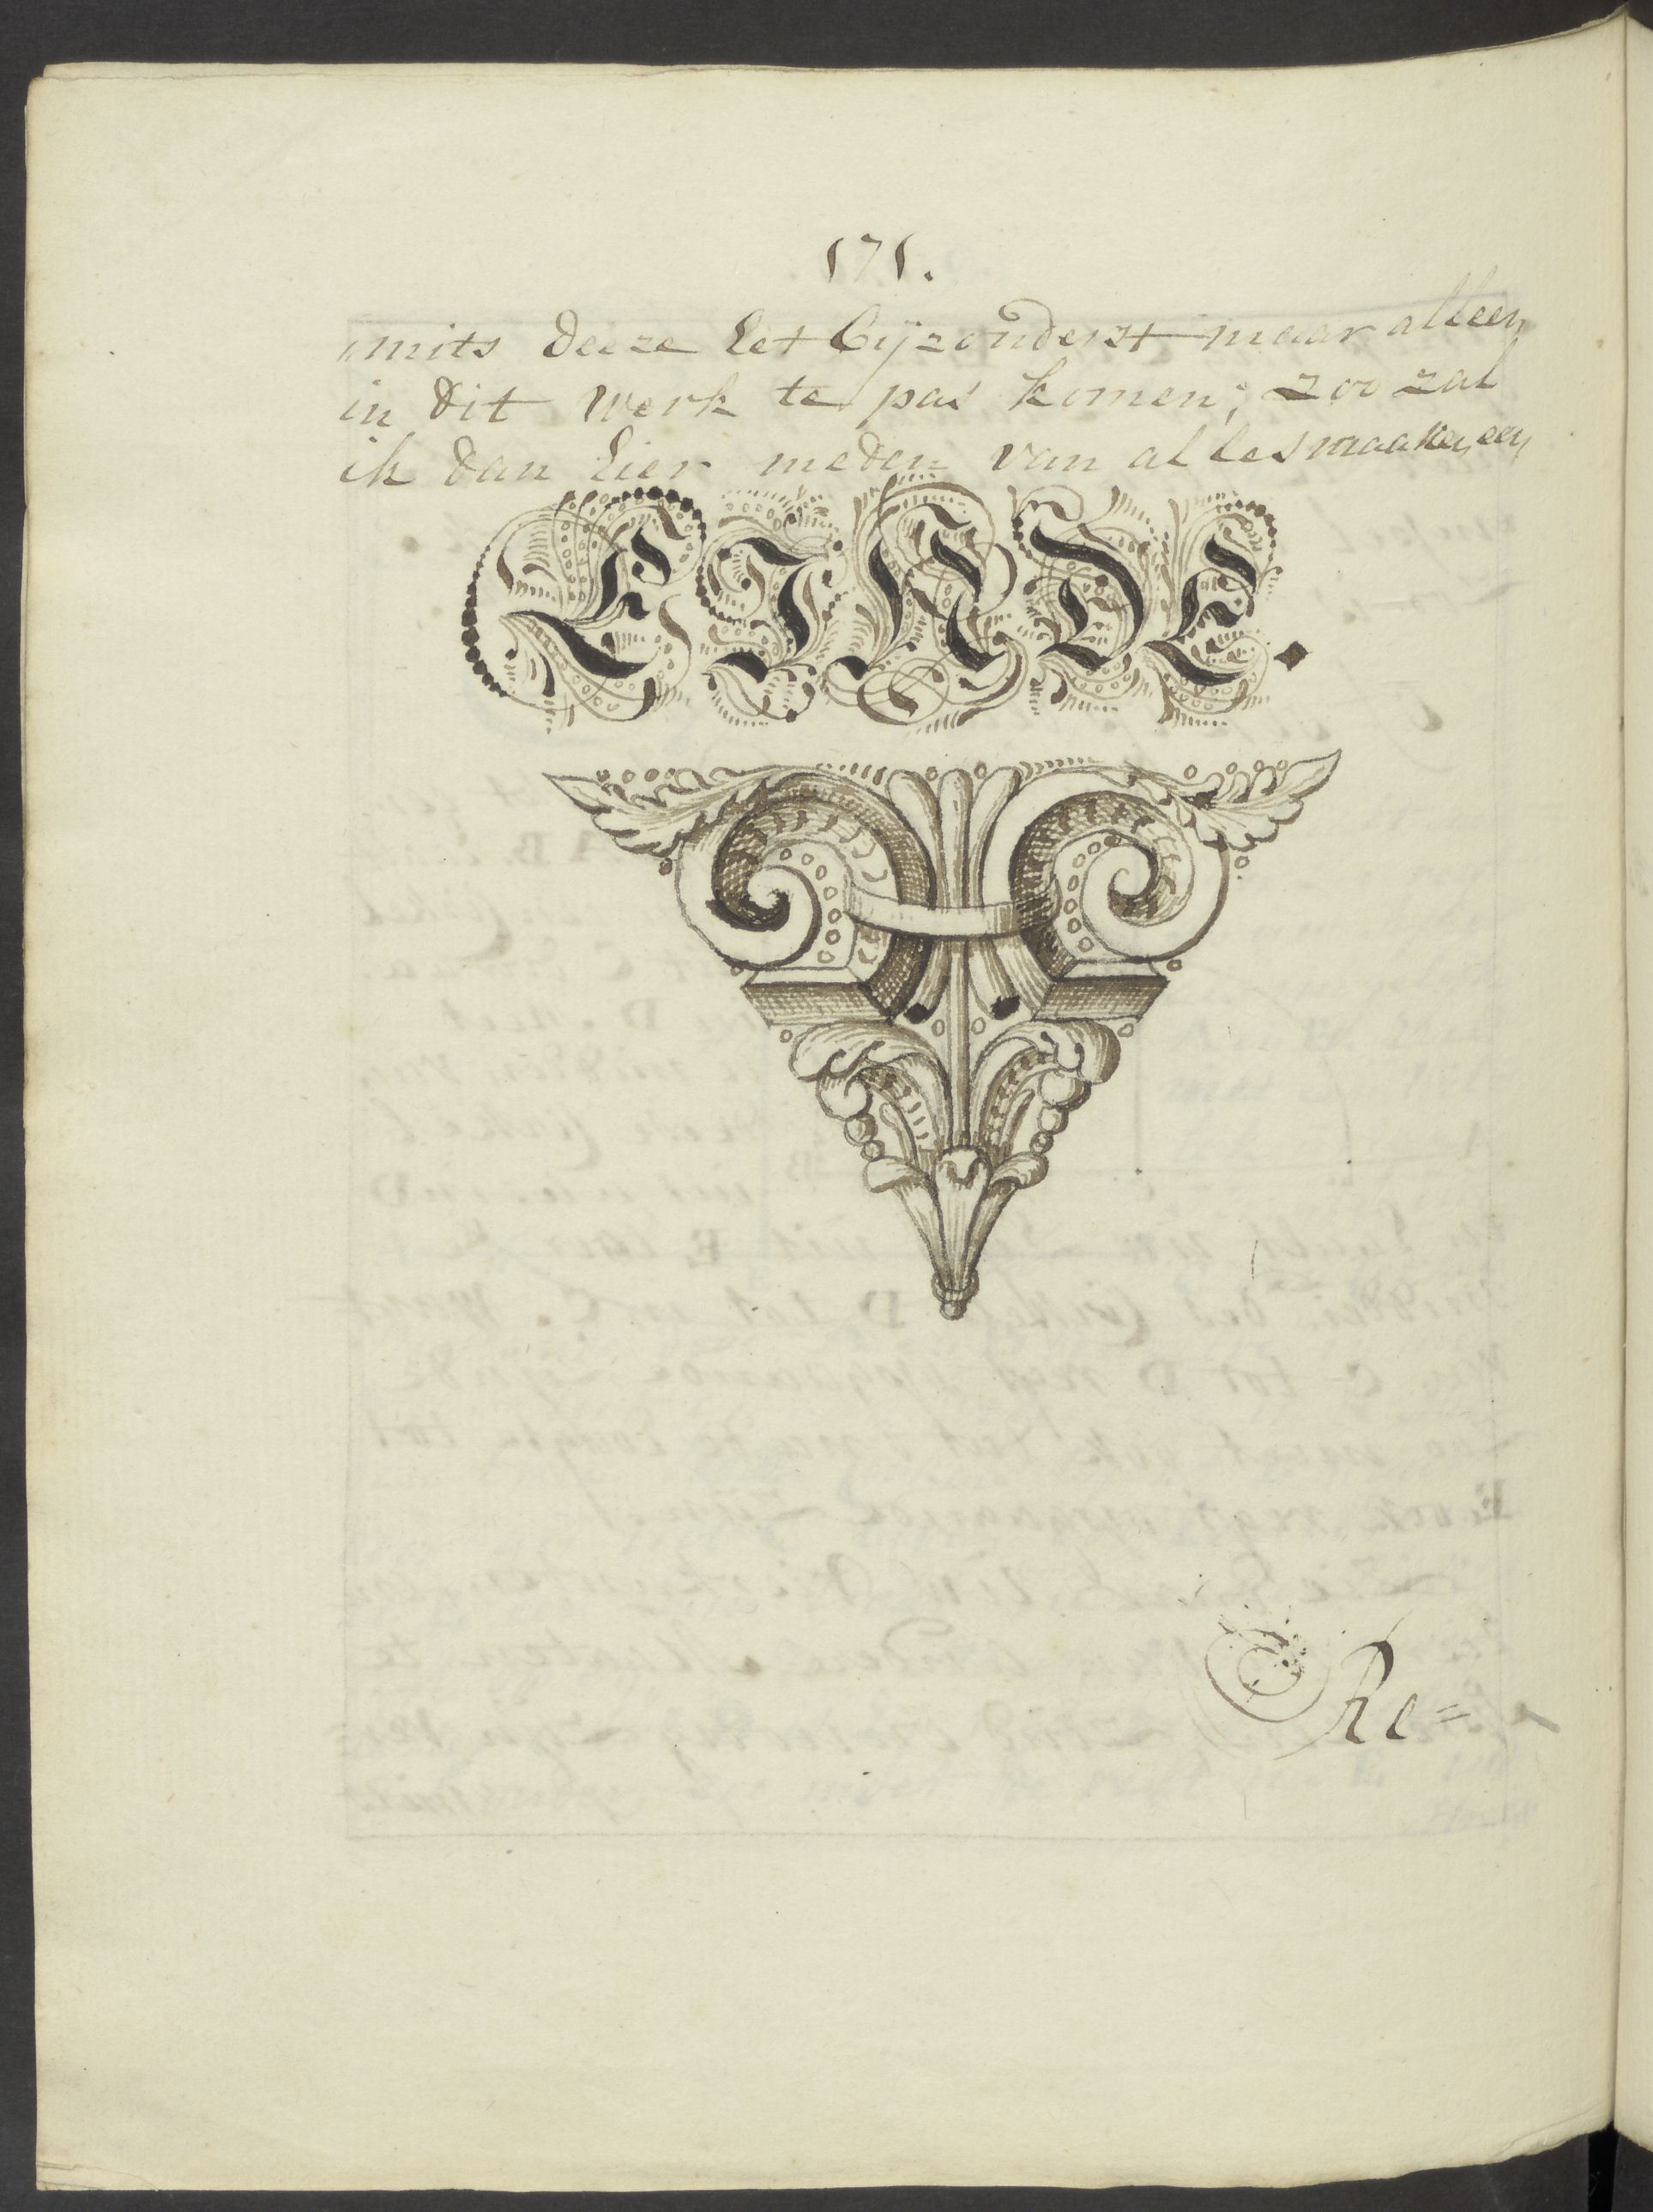 171.
mits deeze het bijzonderst maar alleen
in dit werk te pas komen; zoo zal
ik dan hier meden van alles maaken een
EINDE.
Re=